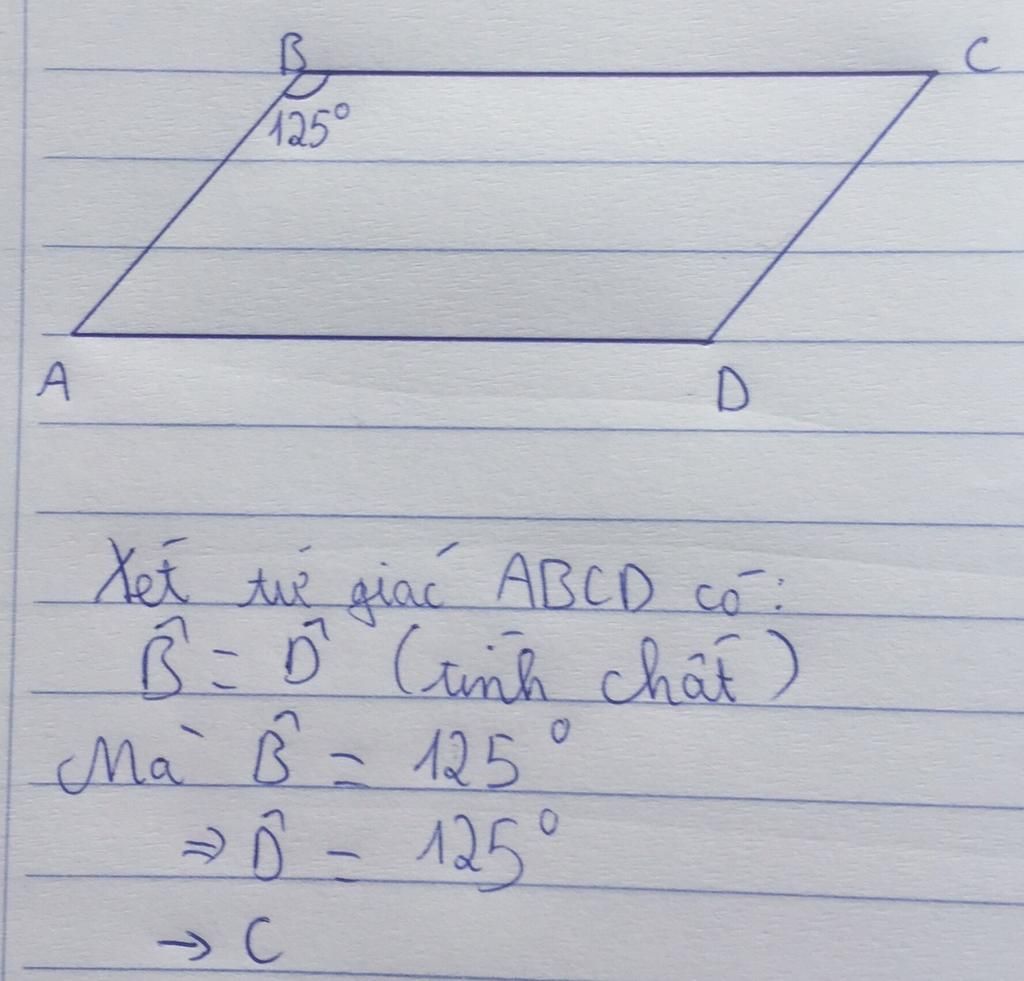 B
C
125°
A
D
Xét tứ giác ABCD có:
B̂ = D̂ (tính chất)
Mà B̂ = 125°
⇒ D̂ = 125°
→ C